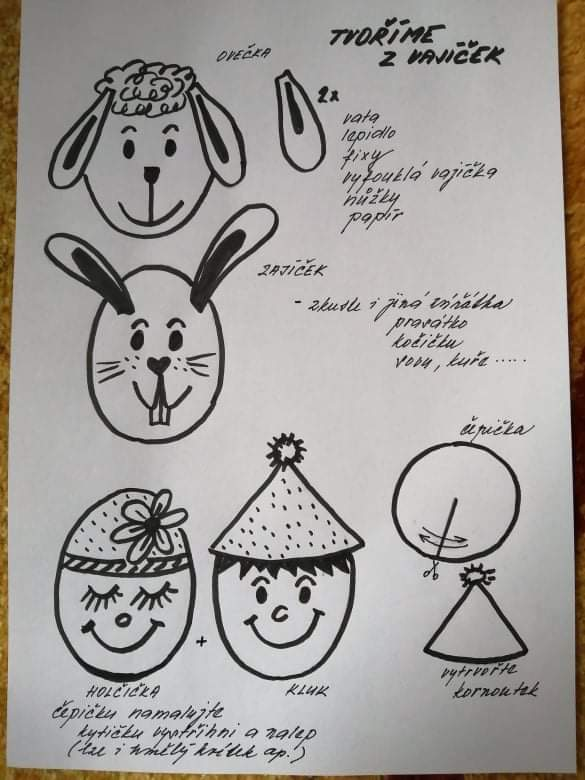 TVOŘÍME
Z VAJÍČEK
OVEČKA
2x
vata
lepidlo
fixy
vyfouklá vajíčka
nůžky
papír
ZAJÍČEK
- zkuste i jiná zvířátka
prasátko
kočičku
sovu, kuře .....
čepička
vytvořte
kornoutek
+
HOLČIČKA
KLUK
čepičku namalujte
kytičku vystřihni a nalep
(lze i umělý kvítek ap.!)